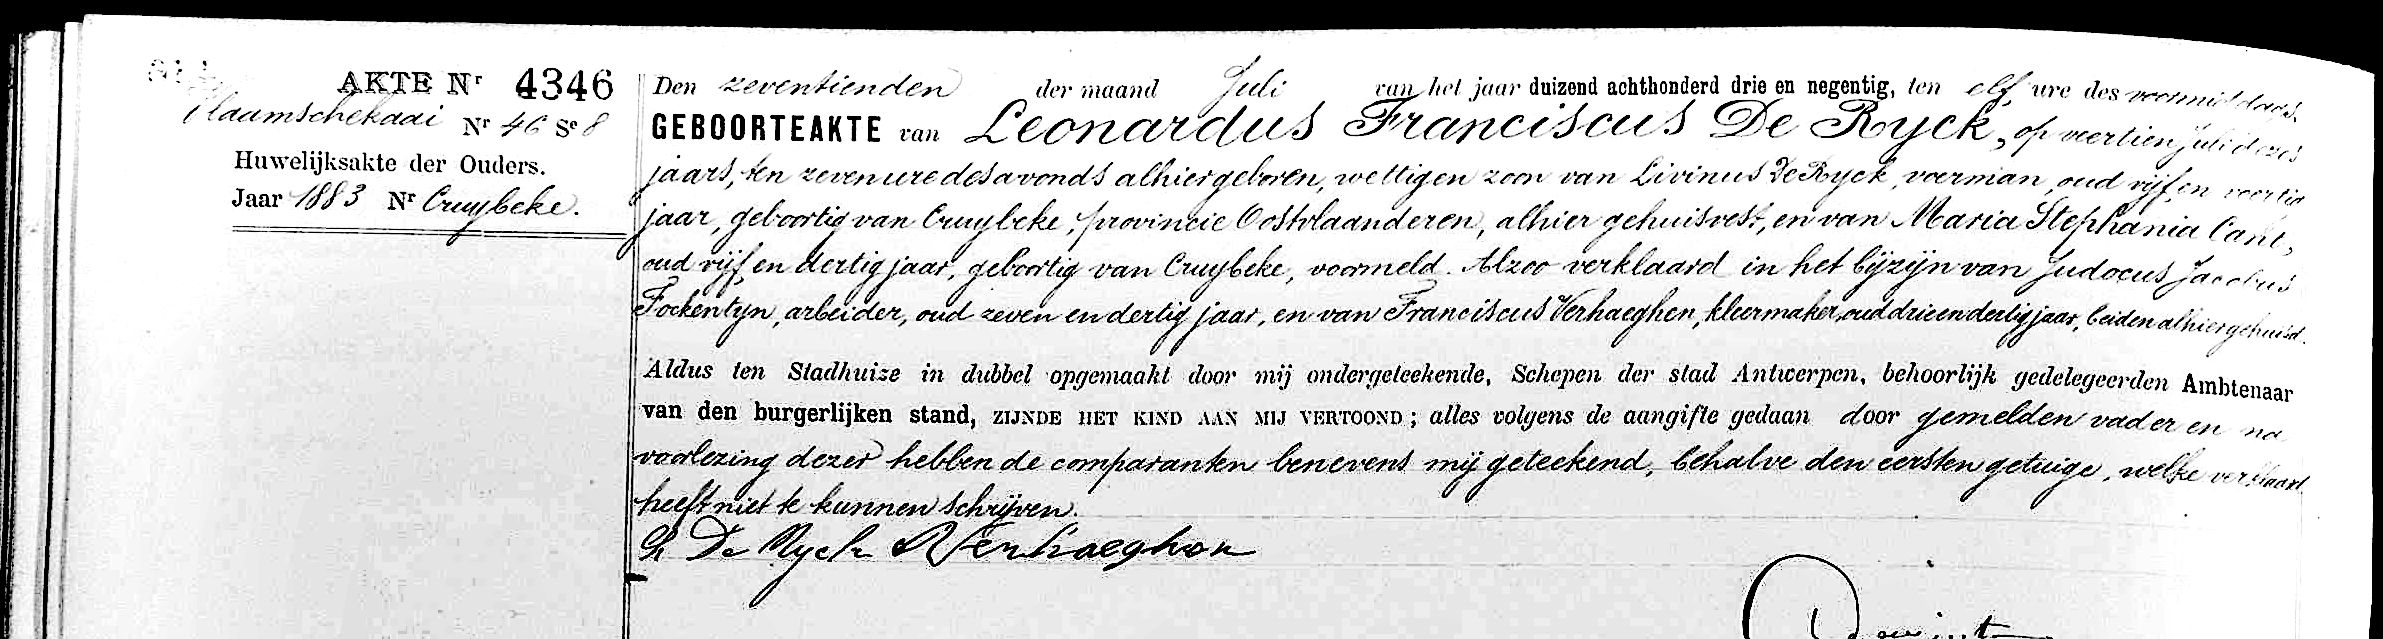 AKTE Nr 4346
Vlaamschekaai Nr 46 Se 8
Huwelijksakte der Ouders.
Jaar 1883 Nr Cruybeke.
Den zeventienden der maand Juli van het jaar duizend achthonderd drie en negentig, ten elf ure des voormiddags.
GEBOORTEAKTE van Leonardus Franciscus De Ryck, op veertien Juli dezes
jaars, ten zeven ure des avonds alhier geboren, wettigen zoon van Livinus De Ryck, voerman, oud vijf en veertig
jaar, geboortig van Cruybeke, provincie Oostvlaanderen, alhier gehuisvest, en van Maria Stephania Cant,
oud vijf en dertig jaar, geboortig van Cruybeke, voormeld. Alzoo verklaard in het bijzijn van Judocus Jacobus
Fockentyn, arbeider, oud zeven en dertig jaar, en van Franciscus Verhaeghen, kleermaker, oud drie en dertig jaar, beiden alhier gehuisd.
Aldus ten Stadhuize in dubbel opgemaakt door mij ondergeteekende, Schepen der stad Antwerpen, behoorlijk gedelegeerden Ambtenaar
van den burgerlijken stand, ZIJNDE HET KIND AAN MIJ VERTOOND; alles volgens de aangifte gedaan door gemelden vader en na
voorlezing dezer hebben de comparanten benevens mij geteekend, behalve den eersten getuige, welke verklaart
heeft niet te kunnen schrijven.
L De Ryck Verhaeghen